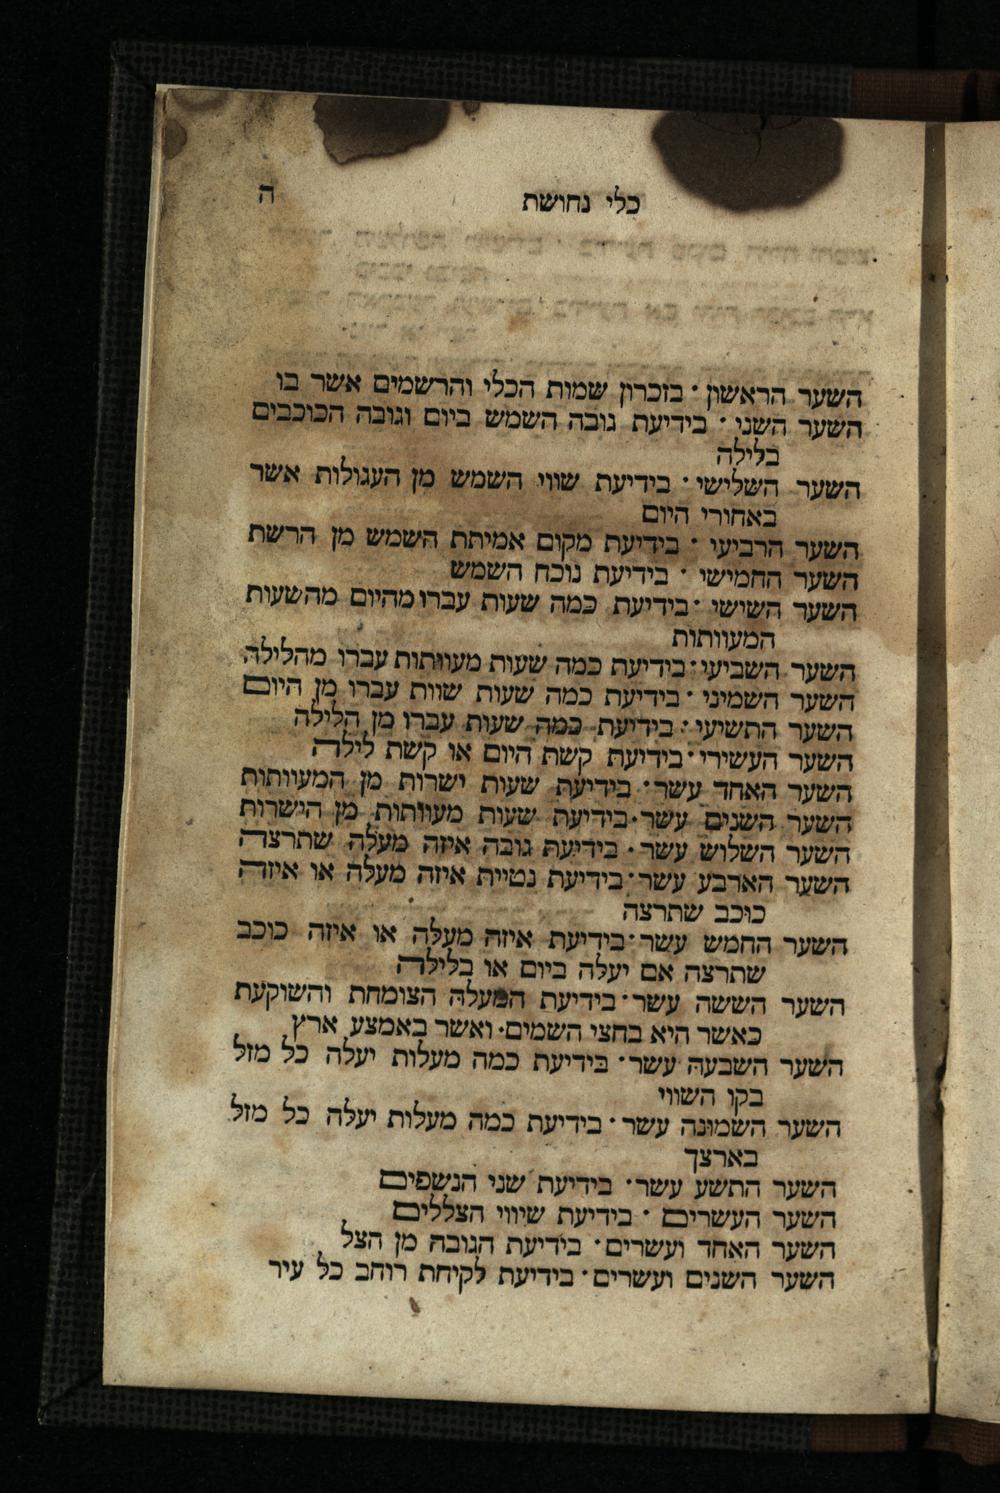 כלי נחושת ה
השער הראשון · בזכרון שמות הכלי והרשמים אשר בו
השער השני · בידיעת גובה השמש ביום וגובה הכוכבים
בלילה
השער השלישי · בידיעת שווי השמש מן העגולות אשר
באחורי היום
השער הרביעי · בידיעת מקום אמיתת השמש מן הרשת
השער החמישי · בידיעת נוכח השמש
השער השישי · בידיעת כמה שעות עברו מהיום מהשעות
המעוותות
השער השביעי · בידיעת כמה שעות מעוותות עברו מהלילה
השער השמיני · בידיעת כמה שעות שוות עברו מן היום
השער התשיעי · בידיעת כמה שעות עברו מן הלילה
השער העשירי · בידיעת קשת היום או קשת לילה
השער האחד עשר · בידיעת שעות ישרות מן המעוותות
השער השנים עשר · בידיעת שעות מעוותות מן הישרות
השער השלוש עשר · בידיעת גובה איזה מעלה שתרצה
השער הארבע עשר · בידיעת נטיית איזה מעלה או איזה
כוכב שתרצה
השער החמש עשר · בידיעת איזה מעלה או איזה כוכב
שתרצה אם יעלה ביום או בלילה
השער הששה עשר · בידיעת המעלה הצומחת והשוקעת
כאשר היא בחצי השמים · ואשר באמצע ארץ
השער השבעה עשר · בידיעת כמה מעלות יעלה כל מזל
בקו השווי
השער השמונה עשר · בידיעת כמה מעלות יעלה כל מזל
בארצך
השער התשע עשר · בידיעת שני הנשפים
השער העשרים · בידיעת שיווי הצללים
השער האחד ועשרים · בידיעת הגובה מן הצל
השער השנים ועשרים · בידיעת לקיחת רוחב כל עיר